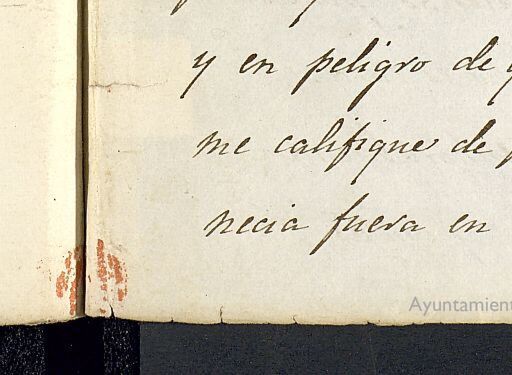 y en peligro de
me califique de
necia fuera en
Ayuntamient